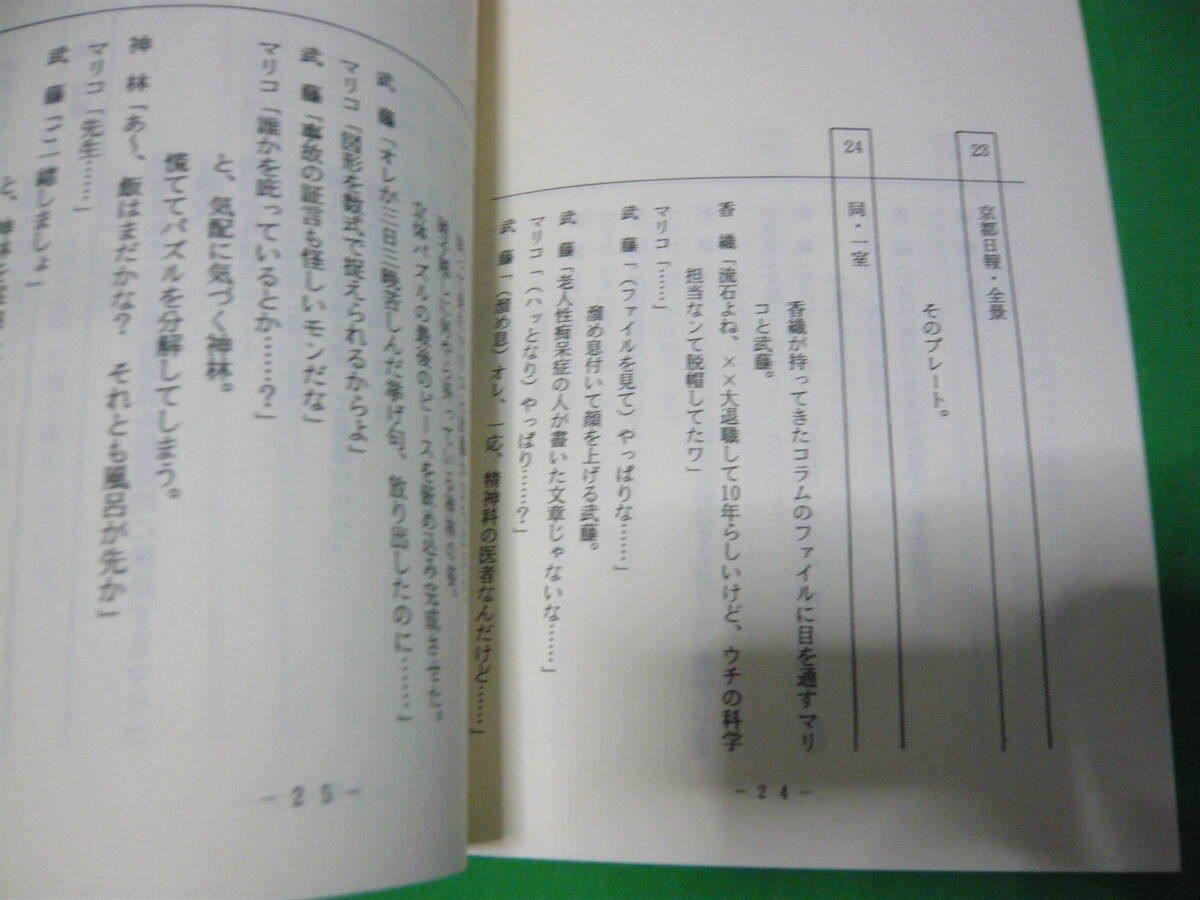 23
京都日報・全景
そのプレート。
24
同・一室
香織が持ってきたコラムのファイルに目を通すマリ
コと武藤。
香織「流石よね、××大退職して10年らしいけど、ウチの科学
担当なンて脱帽してたワ」
マリコ「……」
武藤「(ファイルを見て)やっぱりな……」
溜め息付いて顔を上げる武藤。
武藤「老人性痴呆症の人が書いた文章じゃないな……」
マリコ「(ハッとなり)やっぱり……?」
武藤「(溜め息)オレ、一応、精神科の医者なんだけど……」
-24-
立体パズルの最後のピースを嵌め込み完成させた。
武藤「オレが三日三晩苦しんだ挙げ句、放り出したのに……」
マリコ「図形を数式で捉えられるからよ」
武藤「事故の証言も怪しいモンだな」
マリコ「誰かを庇っているとか……?」
と、気配に気づく神林。
慌ててパズルを分解してしまう。
神林「あ〜、飯はまだかな? それとも風呂が先か」
マリコ「先生……」
武藤「ご一緒しましょ」
と、神林を
-25-